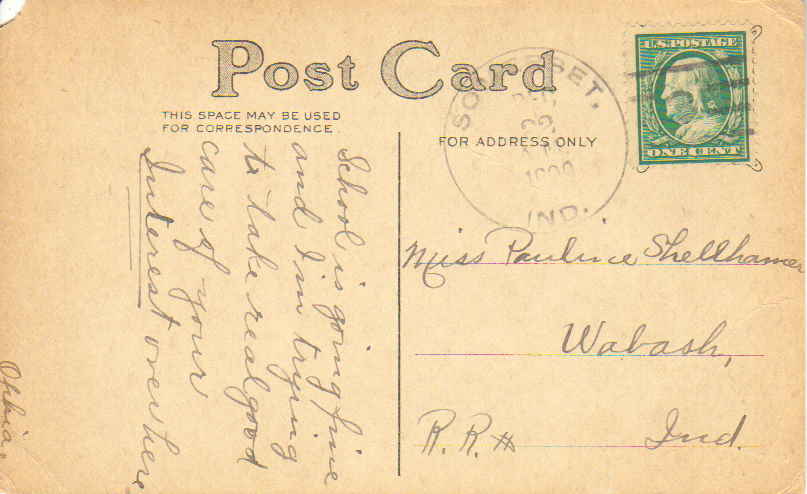 Post Card
THIS SPACE MAY BE USED
FOR CORRESPONDENCE.
FOR ADDRESS ONLY
U.S. POSTAGE
ONE CENT
IND.
School is going fine
and I'm trying
to take real good
care of your
Interest over here
Miss Pauline Shellhamer
Wabash,
R.R.# Ind.